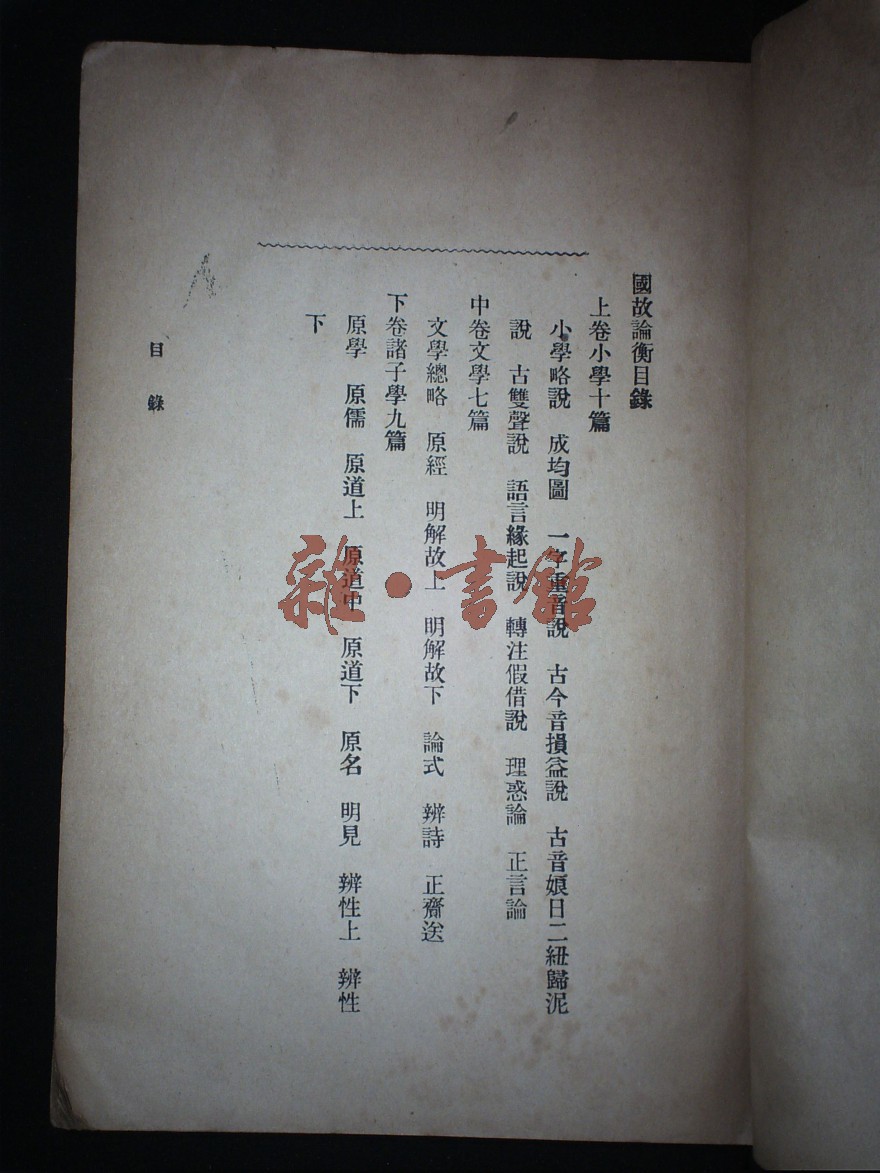 國故論衡目錄
上卷小學十篇
小學略說 成均圖 一字重音說 古今音損益說 古音娘日二紐歸泥
說 古雙聲說 語言緣起說 轉注假借說 理惑論 正言論
中卷文學七篇
文學總略 原經 明解故上 明解故下 論式 辨詩 正齎送
下卷諸子學九篇
原學 原儒 原道上 原道中 原道下 原名 明見 辨性上 辨性
下
目錄
雜·書館